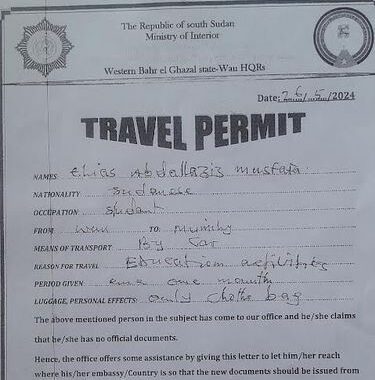 The Republic of south Sudan
Ministry of Interior
Western Bahr el Ghazal state-Wau HQRs
Date: 26/5/2024
TRAVEL PERMIT
NAMES Elias Abdallazis Mustafa
NATIONALITY Sudanese
OCCUPATION Student
FROM wau TO
MEANS OF TRANSPORT By Car
REASON FOR TRAVEL Education activities
PERIOD GIVEN one month
LUGGAGE, PERSONAL EFFECTS: only bag
The above mentioned person in the subject has come to our office and he/she claims
that he/she has no official documents.
Hence, the office offers some assistance by giving this letter to let him/her reach
where his/her embassy/Country is so that the new documents should be issued from